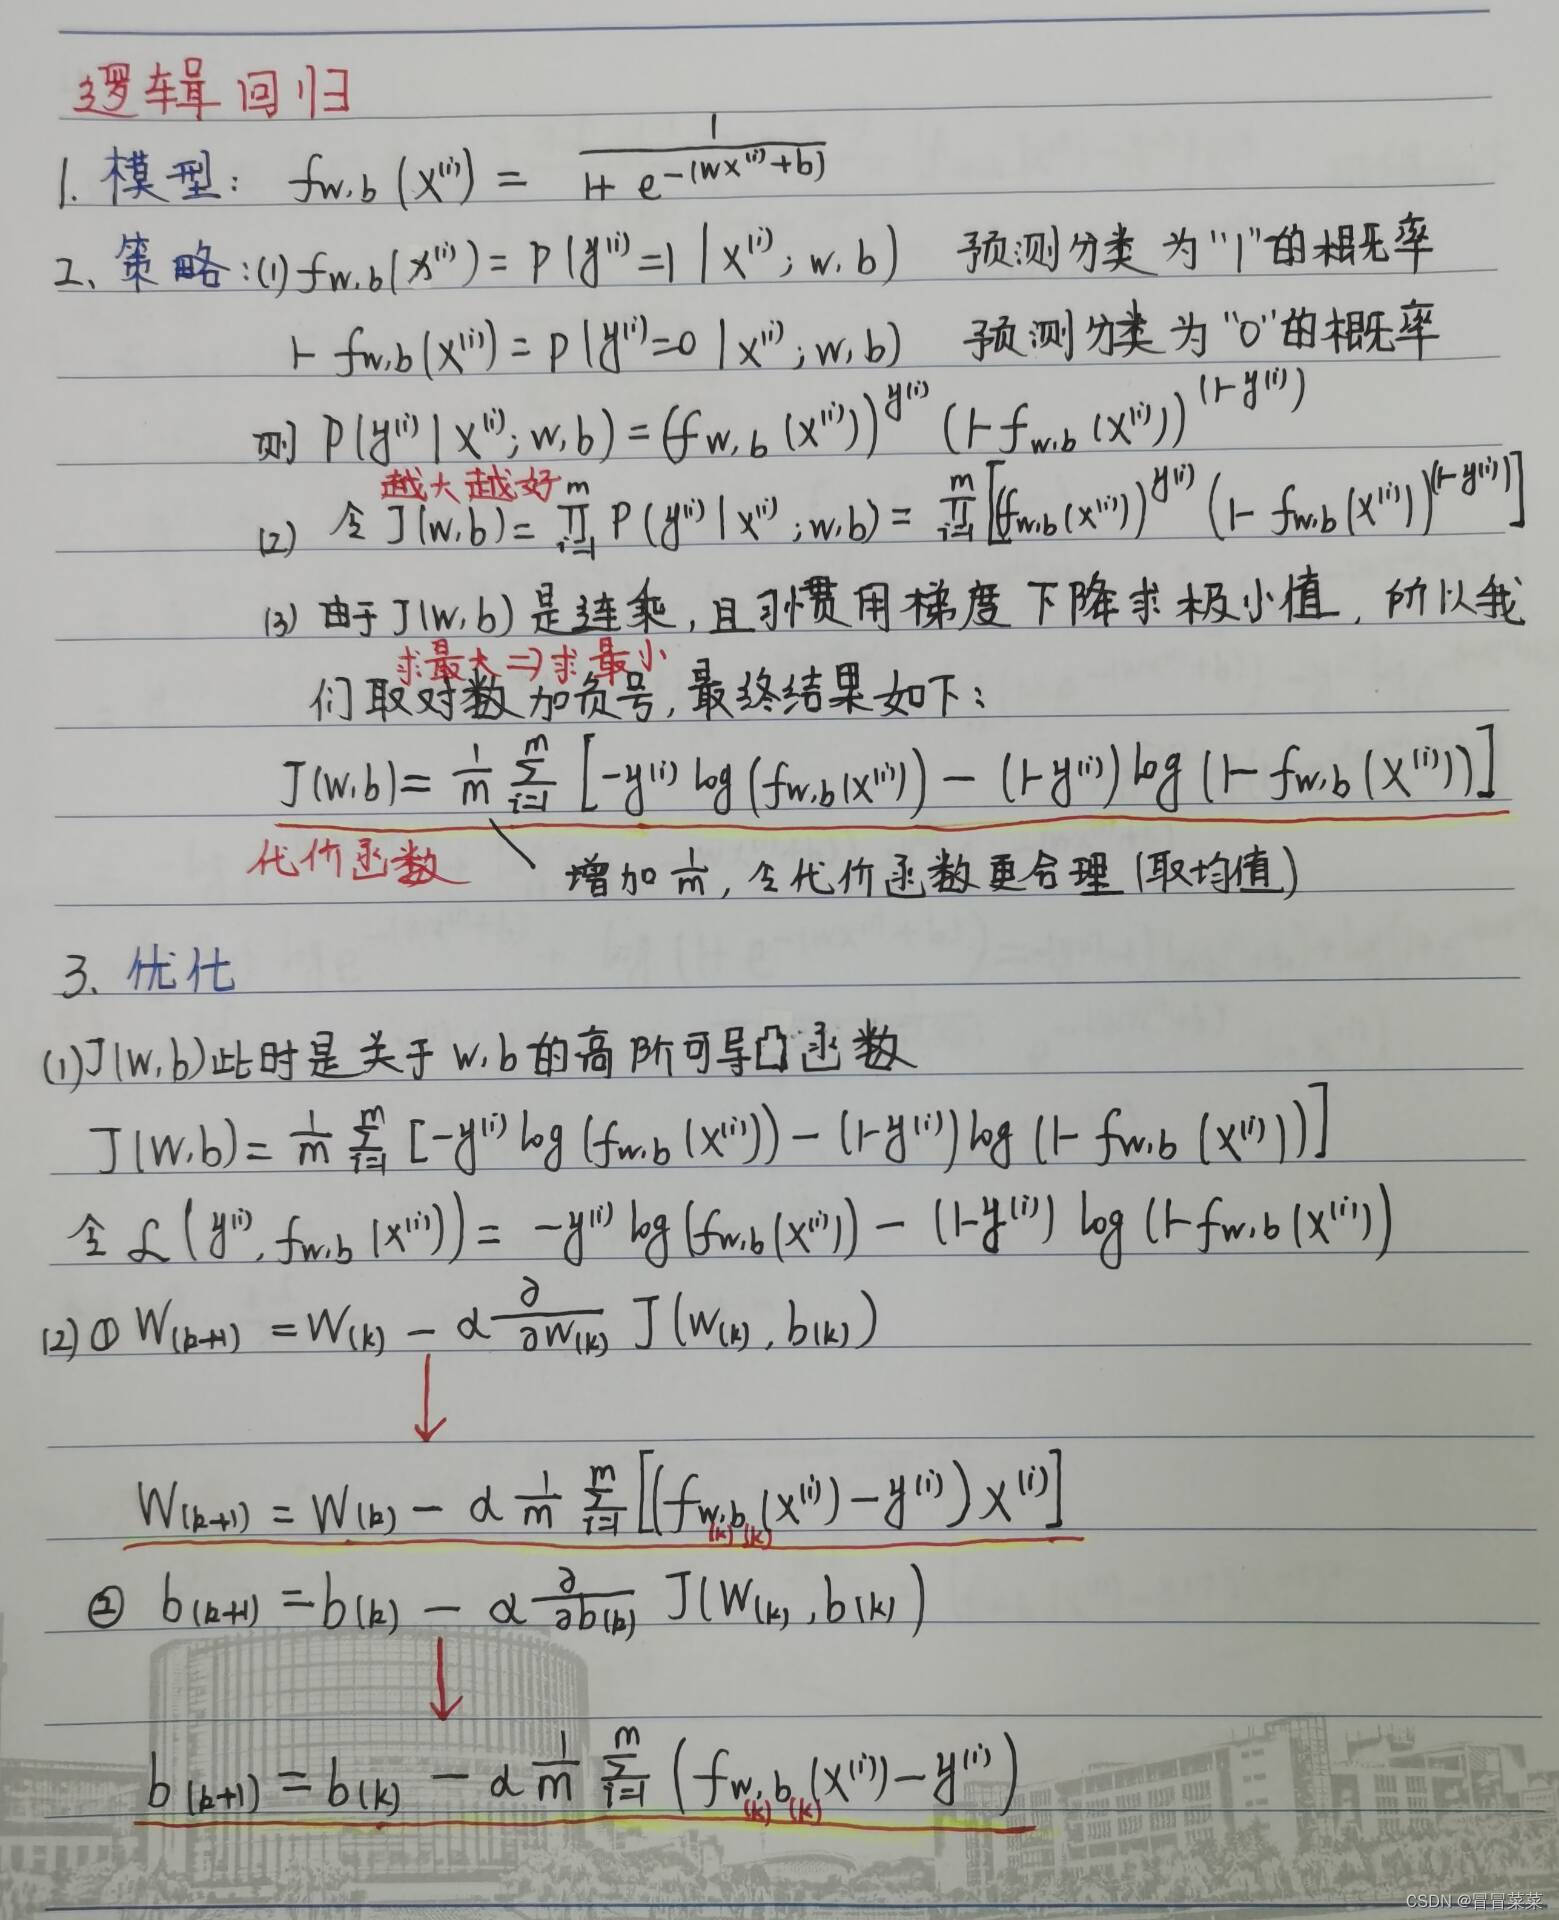 逻辑回归
1. 模型: f_{w,b}(x^{(i)}) = \frac{1}{1+e^{-(wx^{(i)}+b)}}
2、策略:(1) f_{w,b}(x^{(i)}) = P(y^{(i)}=1|x^{(i)};w,b) 预测分类为"1"的概率
1-f_{w,b}(x^{(i)}) = P(y^{(i)}=0|x^{(i)};w,b) 预测分类为"0"的概率
则 P(y^{(i)}|x^{(i)};w,b) = (f_{w,b}(x^{(i)}))^{y^{(i)}} (1-f_{w,b}(x^{(i)}))^{(1-y^{(i)})}
越大越好
(2) 令 J(w,b) = \prod_{i=1}^{m} P(y^{(i)}|x^{(i)};w,b) = \prod_{i=1}^{m} [(f_{w,b}(x^{(i)}))^{y^{(i)}} (1-f_{w,b}(x^{(i)}))^{(1-y^{(i)})}]
(3) 由于J(w,b)是连乘,且习惯用梯度下降求极小值,所以我
求最大⇒求最小
们取对数加负号,最终结果如下:
J(w,b) = \frac{1}{m} \sum_{i=1}^{m} [-y^{(i)} log(f_{w,b}(x^{(i)})) - (1-y^{(i)}) log(1-f_{w,b}(x^{(i)}))]
代价函数 增加\frac{1}{m},令代价函数更合理(取均值)
3、优化
(1) J(w,b)此时是关于w,b的高阶可导凸函数
J(w,b) = \frac{1}{m} \sum_{i=1}^{m} [-y^{(i)} log(f_{w,b}(x^{(i)})) - (1-y^{(i)}) log(1-f_{w,b}(x^{(i)}))]
令 ℒ(y^{(i)}, f_{w,b}(x^{(i)})) = -y^{(i)} log(f_{w,b}(x^{(i)})) - (1-y^{(i)}) log(1-f_{w,b}(x^{(i)}))
(2) ① W_{(k+1)} = W_{(k)} - α \frac{∂}{∂W_{(k)}} J(W_{(k)}, b_{(k)})
W_{(k+1)} = W_{(k)} - α \frac{1}{m} \sum_{i=1}^{m} [(f_{w_{(k)},b_{(k)}}(x^{(i)}) - y^{(i)}) x^{(i)}]
② b_{(k+1)} = b_{(k)} - α \frac{∂}{∂b_{(k)}} J(W_{(k)}, b_{(k)})
b_{(k+1)} = b_{(k)} - α \frac{1}{m} \sum_{i=1}^{m} (f_{w_{(k)},b_{(k)}}(x^{(i)}) - y^{(i)})
CSDN @冒冒菜菜